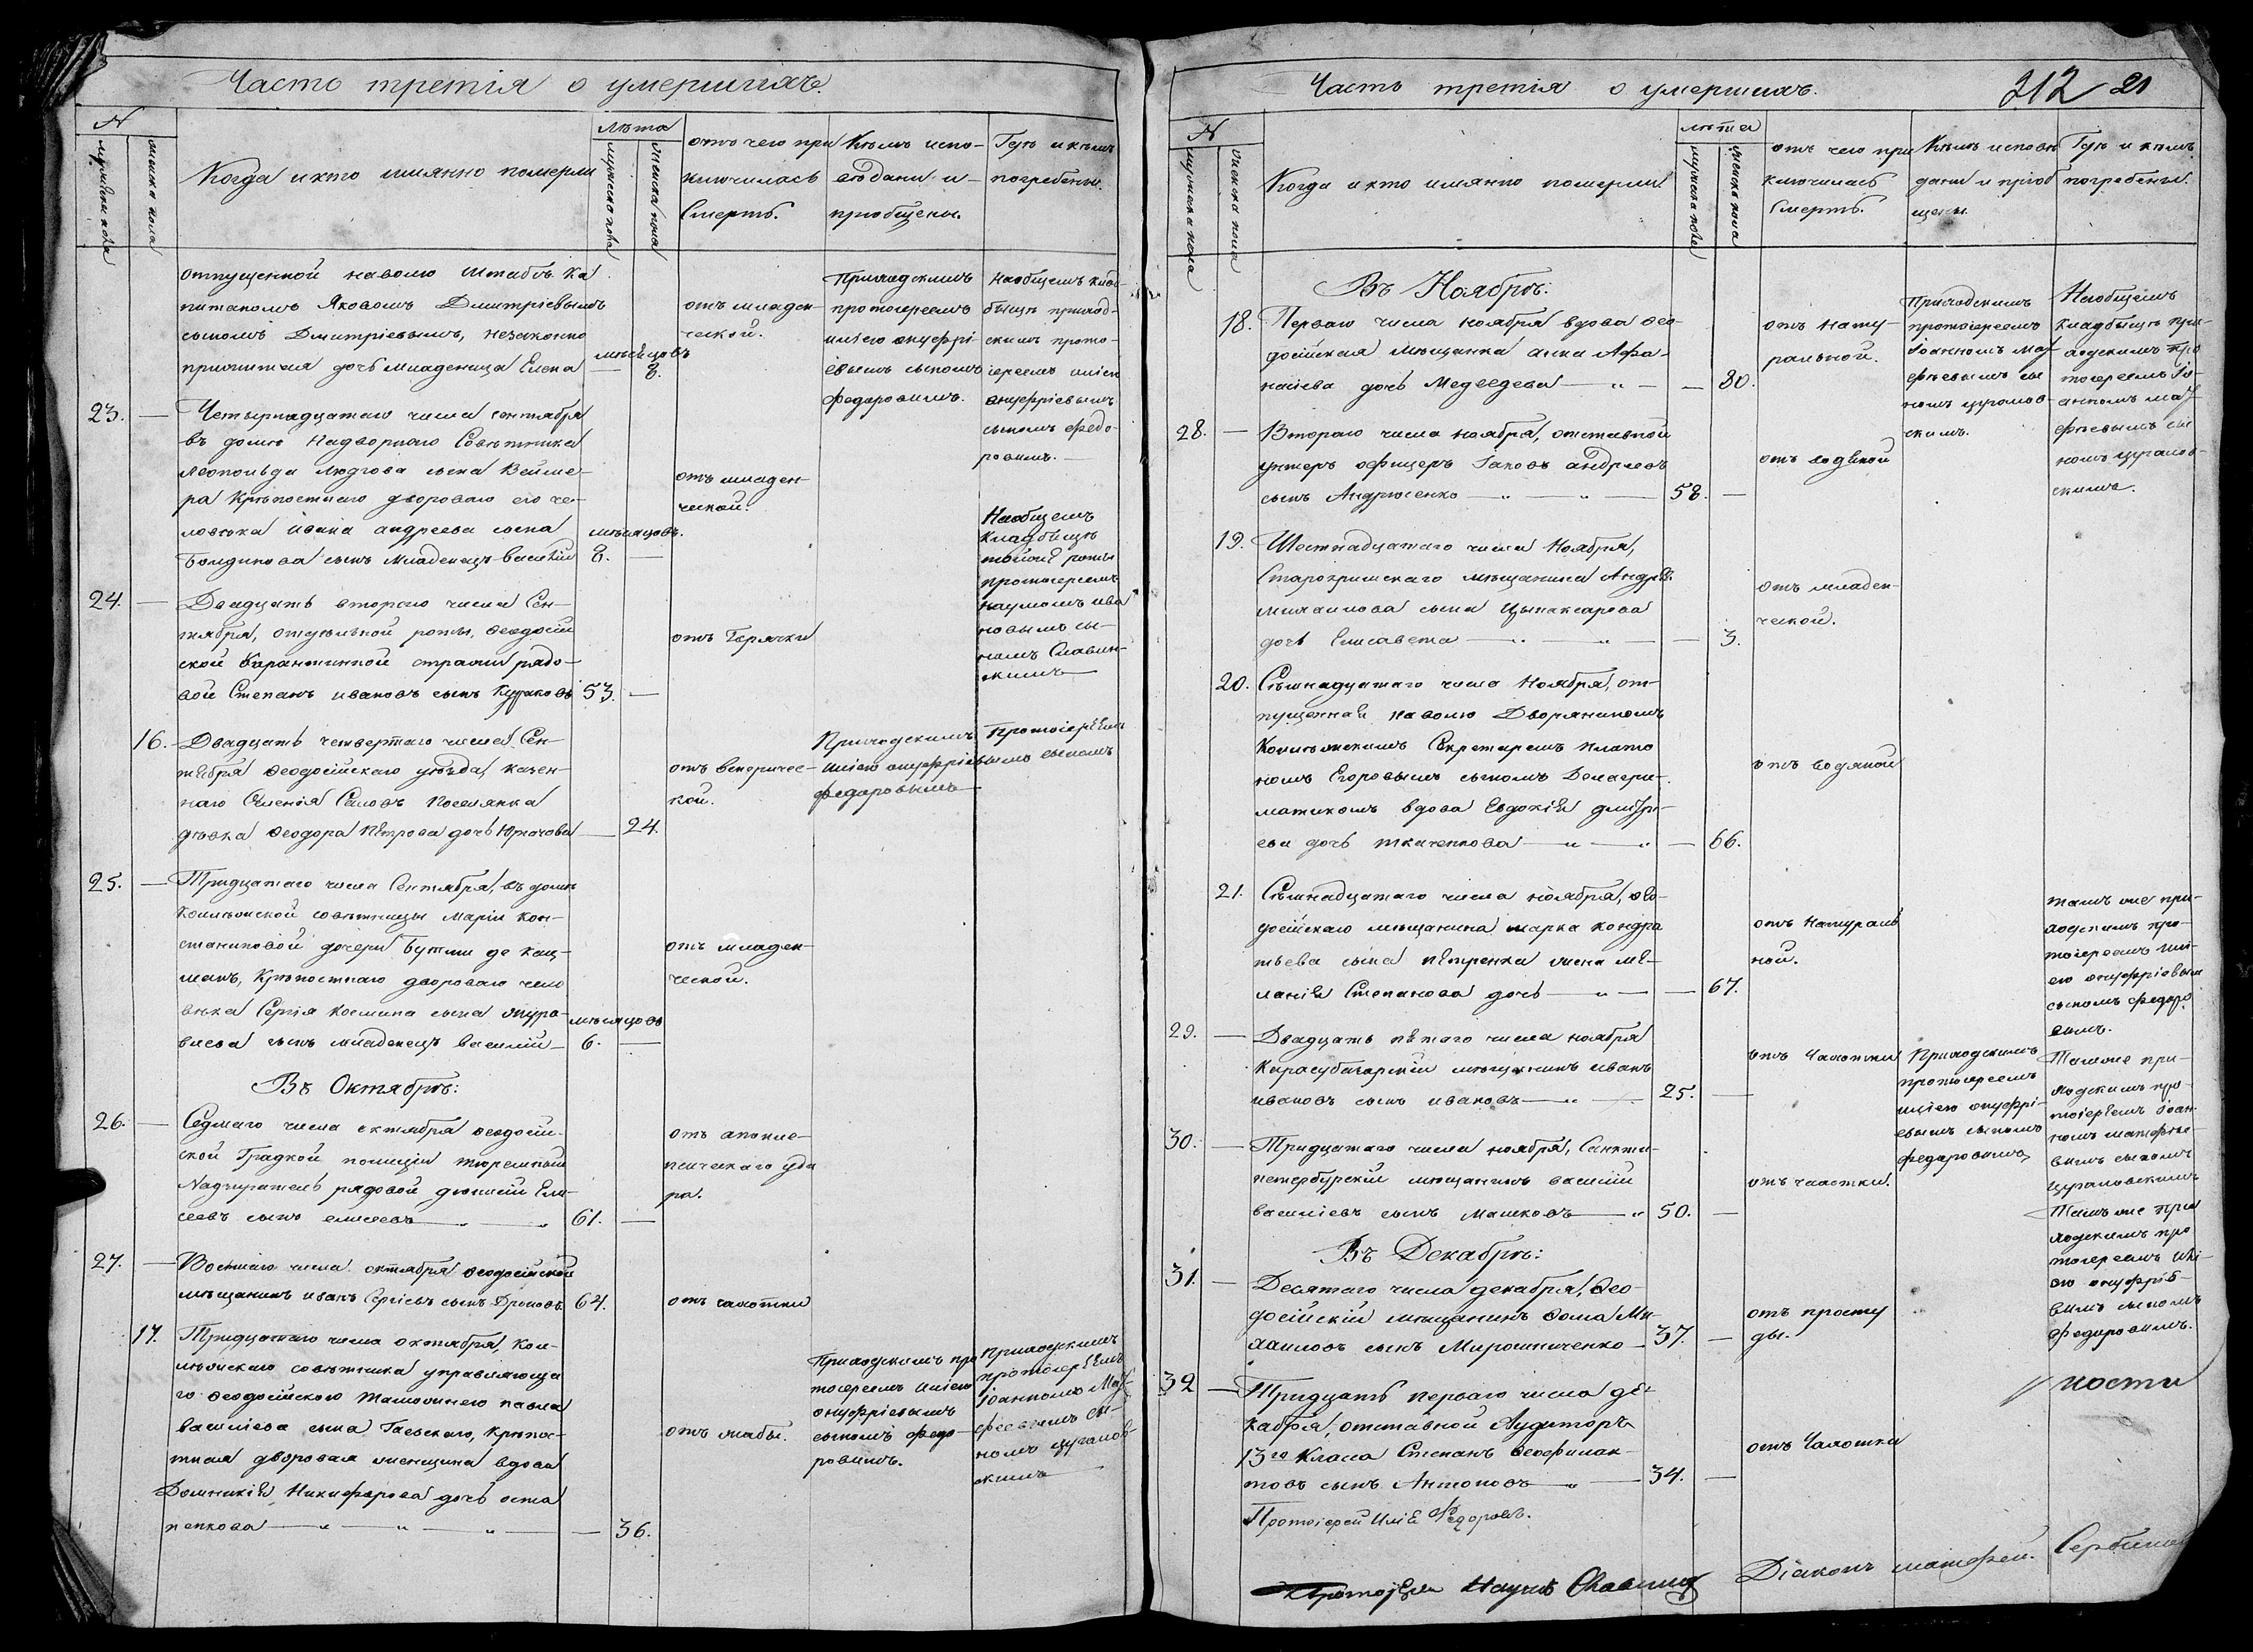 Часть третія о умершихъ.
N
мужеска пола
женска пола
Когда и кто имянно померли
лѣта
мужеска пола
женска пола
отъ чего при
ключилась
Смерть.
Кѣмъ испо-
вѣданы и
пріобщены.
Гдѣ и кѣмъ
погребены.
отпущенной наволю Штабсъ Ка
питаномъ Яковомъ Дмитріевымъ
сыномъ Дмитріевымъ, незаконно
прижитая дочь младеница Елена
мѣсяцовъ
8.
отъ младен-
ческой.
Приходскимъ
протоіереемъ
иліею онуфрі-
евымъ сыномъ
федоровымъ.
Наобщемъ клад-
бищѣ приход-
скимъ прото-
іереемъ иліею
онуфріевымъ
сыномъ федо-
ровымъ.
23. Четырнадцатаго числа сентября
въ домѣ Надворнаго Совѣтника
Леопольда людгова сына Вейме-
ра Крѣпостнаго двороваго его че-
ловѣка ивана андреева сына
Болдинова сынъ младенецъ василій
мѣсяцовъ.
8.
отъ младен-
ческой.
24. Двадцать втораго числа Сен-
тября, отдѣльной роты, Ѳеодосій
ской Карантинной стражи рядо-
вой Степанъ ивановъ сынъ Кудаковъ 53.
отъ Горячки
Наобщемъ
Кладбищѣ
тойже роты
протоіереемъ
наумомъ ива
новымъ сы-
номъ Славин-
скимъ
16. Двадцать четвертаго числа Сен-
тября Ѳеодосійскаго уѣзда, казен-
наго Селенія Саловъ Поселянка
дѣвка Ѳеодора Петрова дочь Юрачова 24.
отъ венеричес-
кой.
Приходскимъ Протоіереемъ
иліею онуфріевымъ сыномъ
федоровымъ
25. Тридцатаго числа Сентября, въ домѣ
Колежской совѣтницы Маріи Кон-
стантиновой дочери Бутми де Кац-
манъ, Крѣпостнаго двороваго чело
вѣка Сергія Космина сына Жура-
влева сынъ младенецъ василій
мѣсяцовъ
6.
отъ младен-
ческой.
Въ Октябрѣ:
26. Седмаго числа октября Ѳеодосій-
ской Градкой полиціи тюремный
Надзиратель рядовой дюжій Ели-
сеевъ сынъ елисеевъ 61.
отъ апопле-
псическаго уда
ра.
27. Восмаго числа октября Ѳеодосійской
мѣщанинъ иванъ Сергіевъ сынъ Дроновъ 64.
отъ чахотки
17. Тридцатаго числа октября, Кол-
лежскаго совѣтника управляюща
го Ѳеодосійскою Таможнею павла
василіева сына Гаевскаго, Крѣпос-
тная дворовая женщина вдова
Домникія Никифорова дочь оста
пенкова 36.
отъ жабы.
Приходскимъ про
тоіереемъ иліею
онуфріевымъ
сыномъ федо-
ровымъ.
Приходскимъ
протоіереемъ
іоанномъ Мат-
феевымъ сы-
номъ цугалов-
скимъ
Часть третія о умершихъ.
212 21
N
мужеска пола
женска пола
Когда и кто имянно померли.
лѣта
мужеска пола
женска пола
отъ чего при
ключилась
Смерть.
Кѣмъ исповѣ
даны и пріоб
щены.
Гдѣ и кѣмъ
погребены.
Въ Ноябрѣ:
18. Перваго числа ноября вдова Ѳео-
досійская мѣщанка анна Афа-
насіева дочь Медведева 80.
отъ нату-
ральной.
Приходскимъ
протоіереемъ
Іоанномъ мат
фѣевымъ сы
номъ цугалов-
скимъ.
Наобщемъ
кладбищѣ при-
ходскимъ про
тоіереемъ Іо-
анномъ мат-
фѣевымъ сы
номъ цугалов-
скимъ.
28. Втораго числа ноября, отставной
унтеръ офицеръ Іаковъ андреевъ
сынъ Андрюсенко 58.
отъ водяной
19. Шестнадцатаго числа Ноября,
Старокримскаго мѣщанина Андрея
михаилова сына Цыпаксарова
дочь Елисавета 3.
отъ младен-
ческой.
20. Семнадцатаго числа Ноября, от-
пущенная наволю Дворяниномъ
Колежскимъ Секретаремъ плато
номъ Егоровымъ сыномъ Делагра-
матикомъ вдова Евдокія дмитри-
ева дочь ткаченкова 66.
отъ водяной
21. Семнадцатаго числа ноября, Ѳео-
досійскаго мѣщанина марка кондра
тьева сына петренка жена ме-
ланія Степанова дочь 67.
отъ натураль
ной.
тамъ же при-
ходскимъ про-
тоіереемъ илі-
ею онуфріевым
сыномъ федоро
вымъ.
29. Двадцать пятаго числа ноября
Карасубазарскій мѣщанинъ иванъ
ивановъ сынъ ивановъ 25.
отъ чахотки
Приходскимъ
протоіереемъ
иліею онуфрі-
евымъ сыномъ
федоровымъ
Тамже при-
ходскимъ про-
тоіереемъ іоан-
номъ матфѣе-
вымъ сыномъ
цугаловскимъ
30. Тридцатаго числа ноября, Санкти-
петербурскій мѣщанинъ василій
василіевъ сынъ Машковъ 50.
отъ чахотки.
Тамъ же при
ходскимъ про
тоіереемъ илі-
ею онуфріе-
вымъ сыномъ
федоровымъ.
Въ Декабрѣ:
31. Десятаго числа декабря, Ѳео-
досійскій мѣщанинъ Ѳома Ми-
хаиловъ сынъ Мирошниченко 37.
отъ просту
ды.
32 Тридцать перваго числа де-
кабря, отставной Аудиторъ
13го Класа Степанъ Ѳеофилак-
товъ сынъ Антоновъ 34.
отъ Чахотки
ности
Протоіерей Илія Ѳедоровъ.
Протоіерей Наумъ Славинскій
Діаконъ матфей Сербинов